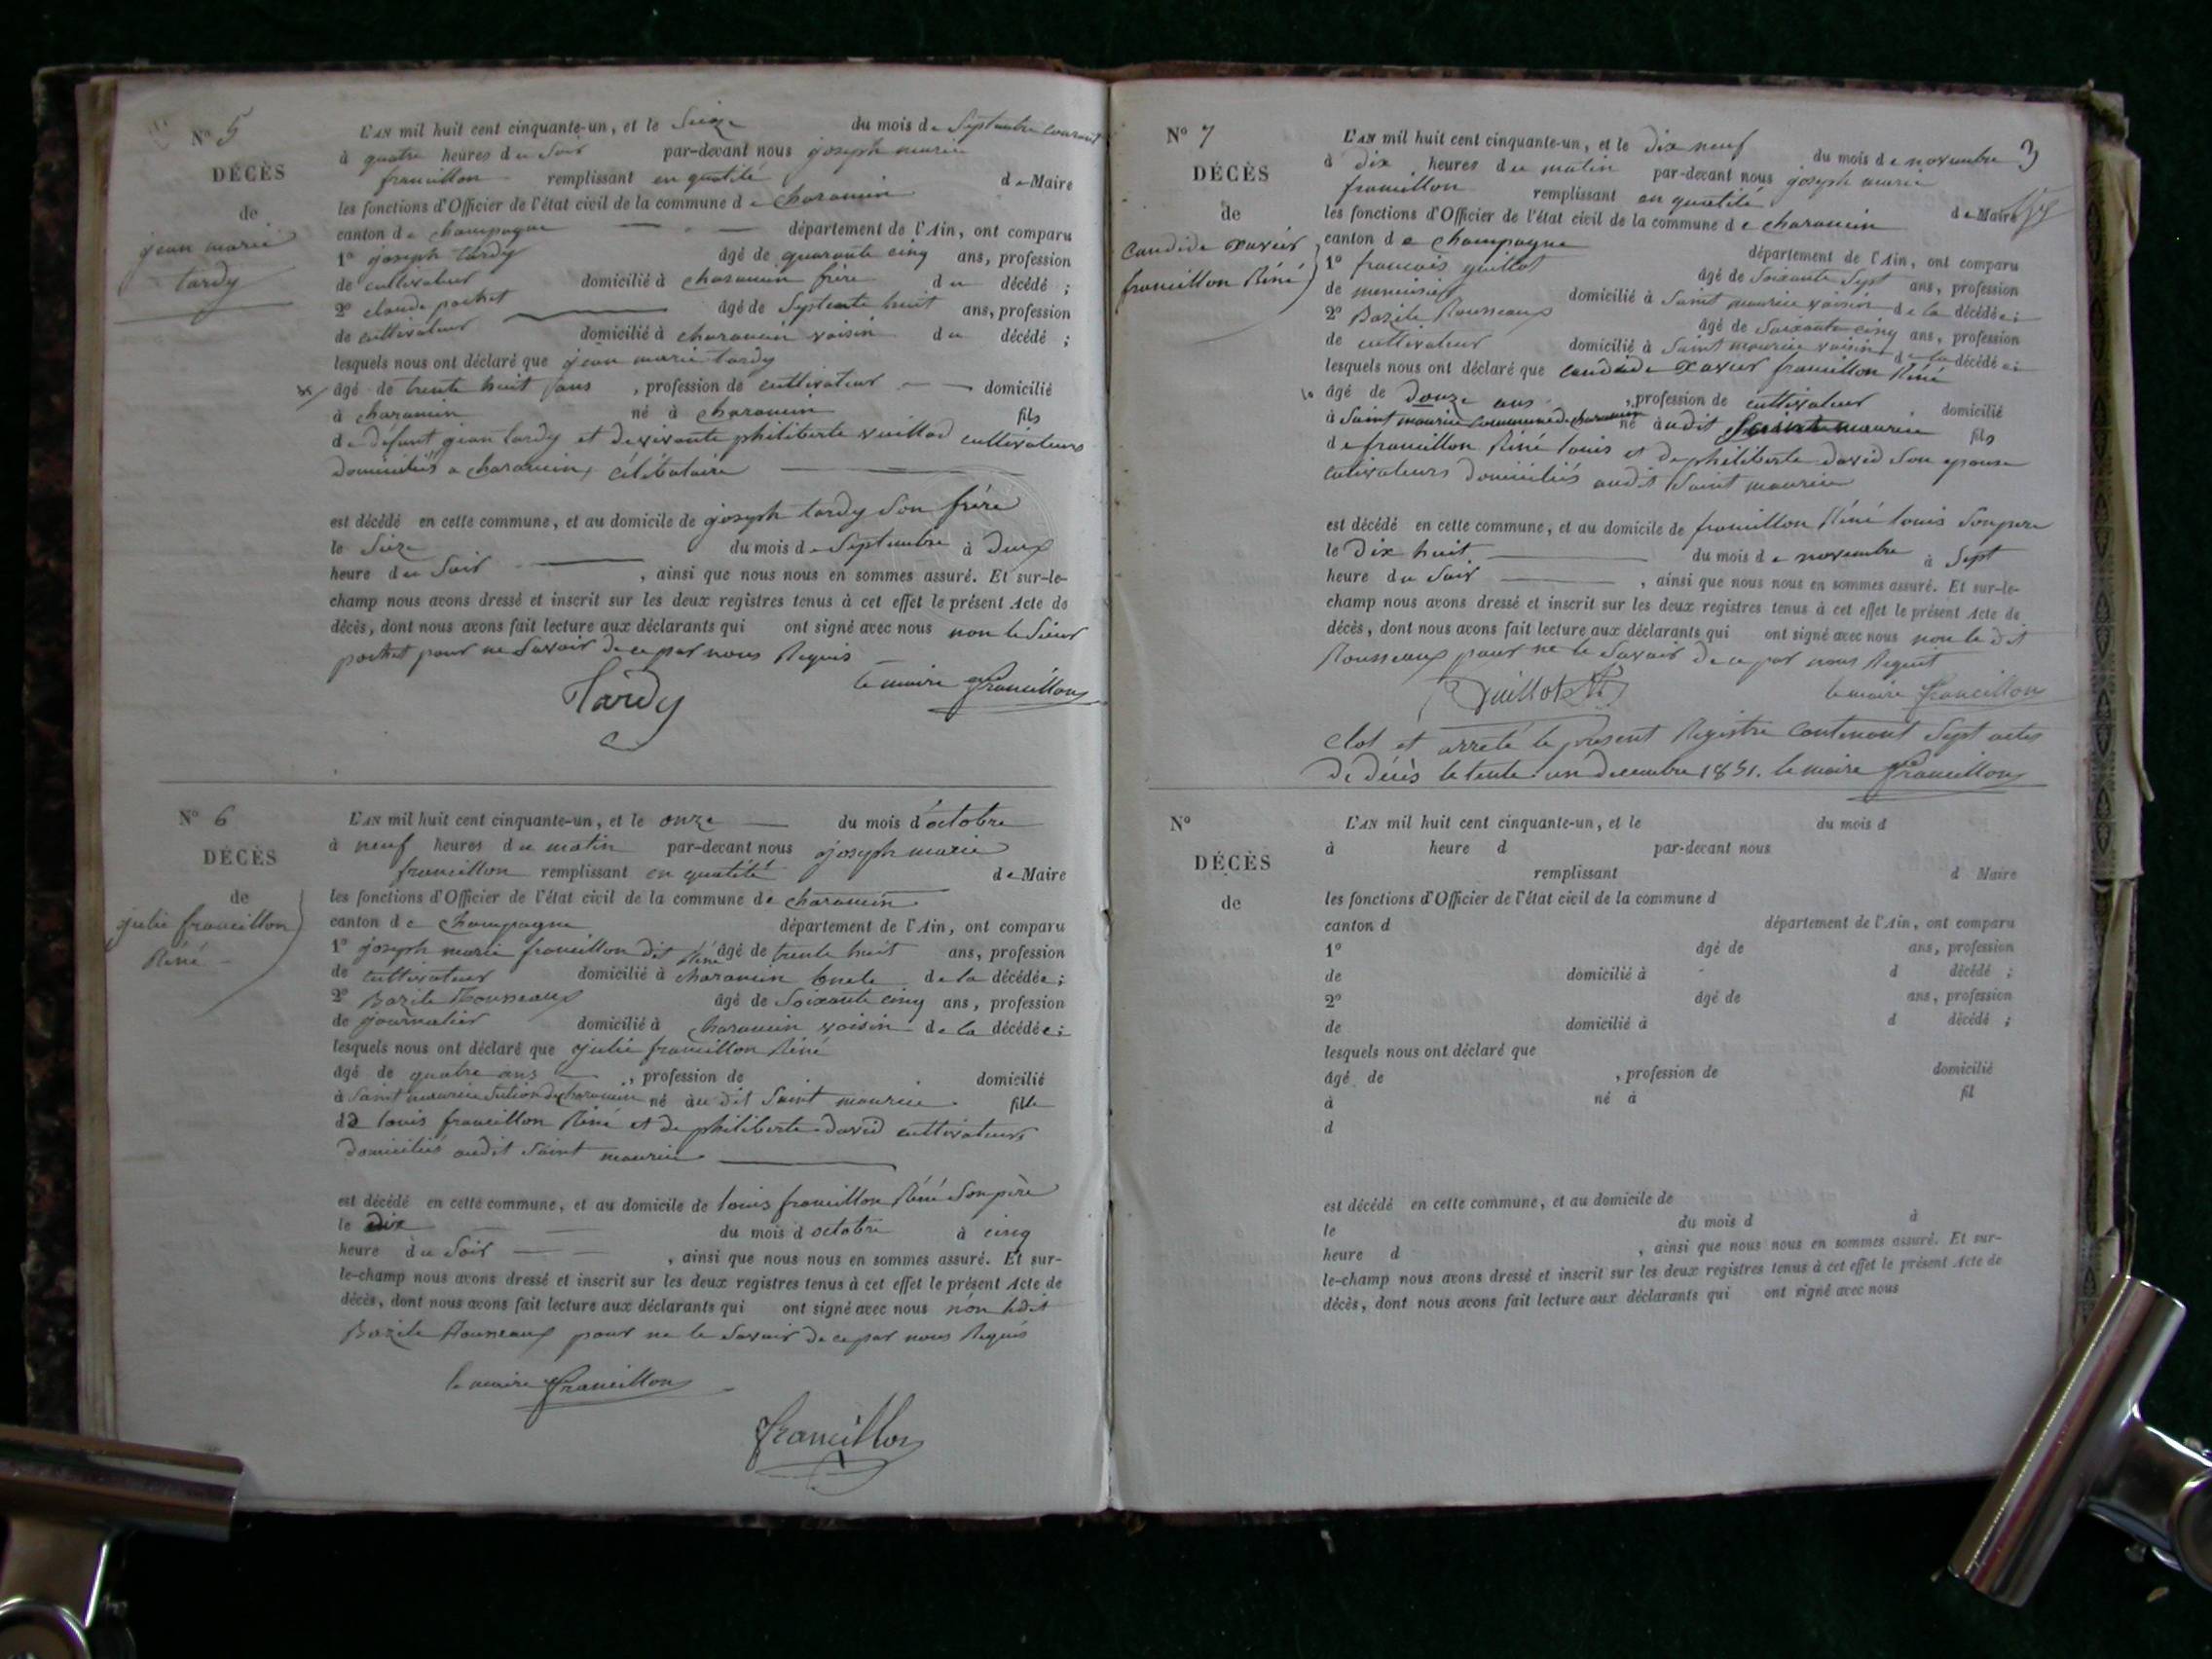 N° 5
DÉCÈS
de
jean marie
tardy
L'AN mil huit cent cinquante-un, et le Seize du mois de Septembre courant
à quatre heures du Soir par-devant nous joseph marie
francillon remplissant en qualité de Maire
les fonctions d'Officier de l'état civil de la commune de charancin
canton de champagne département de l'Ain, ont comparu
1° joseph tardy âgé de quarante cinq ans, profession
de cultivateur domicilié à charancin frère du décédé ;
2° claude pochet âgé de Septente huit ans, profession
de cultivateur domicilié à charancin voisin du décédé ;
lesquels nous ont déclaré que jean marie tardy
âgé de trente huit ans , profession de cultivateur domicilié
à charancin né à charancin fils
de défunt jean tardy et de vivante philiberte vuillod cultivateurs
domiciliés a charancin, célibataire
est décédé en cette commune, et au domicile de joseph tardy Son frère
le Seize du mois de Septembre à Deux
heure du Soir , ainsi que nous nous en sommes assuré. Et sur-le-
champ nous avons dressé et inscrit sur les deux registres tenus à cet effet le présent Acte de
décès, dont nous avons fait lecture aux déclarants qui ont signé avec nous non le Sieur
pochet pour ne Savoir de ce par nous Requis
Tardy le maire francillon
N° 6
DÉCÈS
de
julie francillon
Réné
L'AN mil huit cent cinquante-un, et le onze du mois d'octobre
à neuf heures du matin par-devant nous joseph marie
francillon remplissant en qualité de Maire
les fonctions d'Officier de l'état civil de la commune de charancin
canton de Champagne département de l'Ain, ont comparu
1° joseph marie francillon dit Réné âgé de trente huit ans, profession
de cultivateur domicilié à charancin oncle de la décédée ;
2° Bazile Rousseaux âgé de Soixante cinq ans, profession
de journalier domicilié à charancin voisin de la décédée ;
lesquels nous ont déclaré que julie francillon Réné
âgé de quatre ans , profession de domicilié
à Saint maurice Section de charancin né au dit Saint maurice fille
de louis francillon Réné et de philiberte david cultivateurs
domiciliés audit Saint maurice
est décédé en cette commune, et au domicile de louis francillon Réné Son père
le dix du mois d octobre à cinq
heure du Soir , ainsi que nous nous en sommes assuré. Et sur-
le-champ nous avons dressé et inscrit sur les deux registres tenus à cet effet le présent Acte de
décès, dont nous avons fait lecture aux déclarants qui ont signé avec nous non ledit
Bazile Rousseaux pour ne le Savoir de ce par nous Requis
le maire francillon
francillon
3
N° 7
DÉCÈS
de
Candide xavier
francillon Réné
L'AN mil huit cent cinquante-un, et le dix neuf du mois de novembre
à dix heures du matin par-devant nous joseph marie
francillon remplissant en qualité de Maire
les fonctions d'Officier de l'état civil de la commune de charancin
canton de champagne département de l'Ain, ont comparu
1° francois guillot âgé de Soixante Sept ans, profession
de menuisier domicilié à Saint maurice voisin de la décédée ;
2° Bazile Rousseaux âgé de Soixante cinq ans, profession
de cultivateur domicilié à Saint maurice voisin de la décédée ;
lesquels nous ont déclaré que candide xavier francillon Réné
âgé de douze ans , profession de cultivateur domicilié
à Saint maurice commune de charancin né audit Saint maurice fils
de francillon Réné louis et de philiberte david Son epouse
cultivateurs domiciliés audit Saint maurice
est décédé en cette commune, et au domicile de francillon Réné louis Son pere
le Dix huit du mois de novembre à Sept
heure du Soir , ainsi que nous nous en sommes assuré. Et sur-le-
champ nous avons dressé et inscrit sur les deux registres tenus à cet effet le présent Acte de
décès, dont nous avons fait lecture aux déclarants qui ont signé avec nous non le dit
Rousseaux pour ne le Savoir de ce par nous Requit
Guillot le maire francillon
Clot et arrêté le présent Registre contenant Sept actes
de décès le trente un decembre 1851. le maire francillon
N°
DÉCÈS
de
L'AN mil huit cent cinquante-un, et le du mois d
à heure d par-devant nous
remplissant d Maire
les fonctions d'Officier de l'état civil de la commune d
canton d département de l'Ain, ont comparu
1° âgé de ans, profession
de domicilié à d décédé ;
2° âgé de ans, profession
de domicilié à d décédé ;
lesquels nous ont déclaré que
âgé de , profession de domicilié
à né à fil
d
est décédé en cette commune, et au domicile de
le du mois d à
heure d , ainsi que nous nous en sommes assuré. Et sur-
le-champ nous avons dressé et inscrit sur les deux registres tenus à cet effet le présent Acte de
décès, dont nous avons fait lecture aux déclarants qui ont signé avec nous